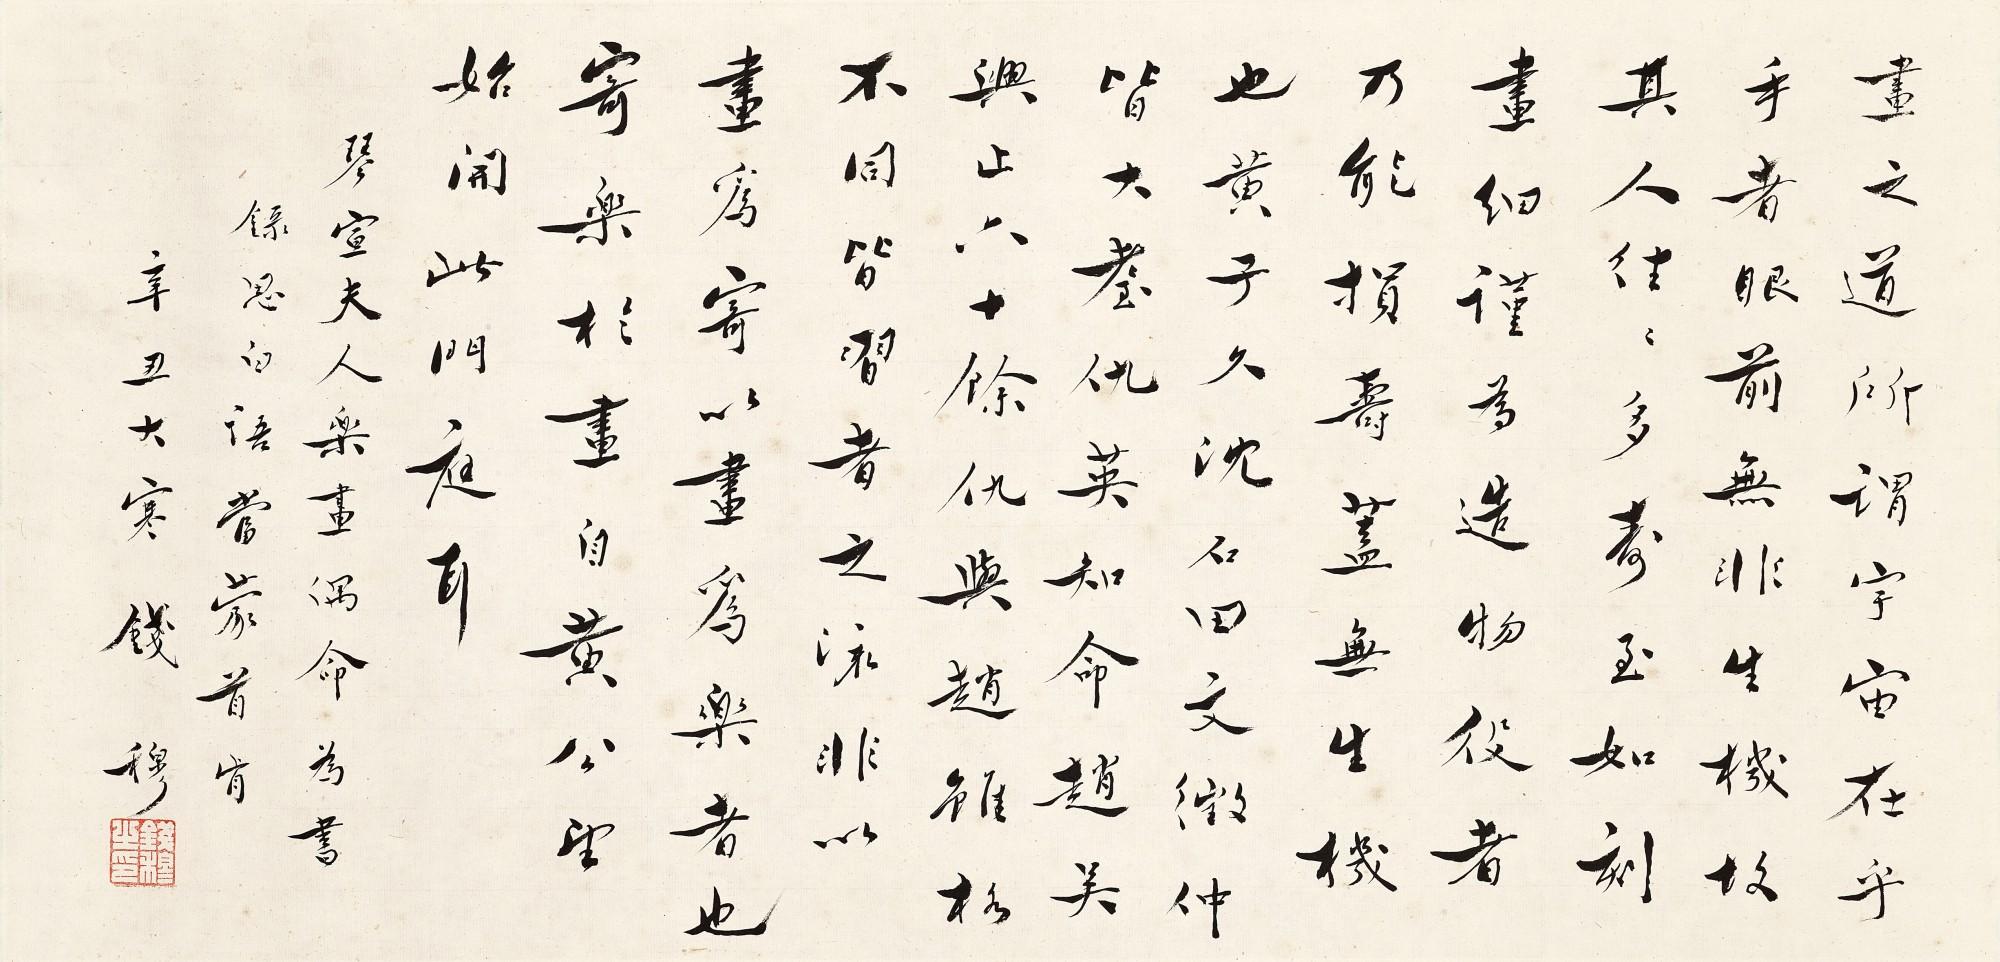 畫之道所謂宇宙在乎
手者眼前無非生機故
其人往〻多壽至如刻
畫細謹為造物役者
乃能損壽蓋無生機
也黃子久沈石田文徵仲
皆大耋仇英知命趙吳
興止六十餘仇與趙雖格
不同皆習者之流非以
畫爲寄以畫爲樂者也
寄樂於畫自黃公望
始開此門庭耳
琴宣夫人樂畫偶命為書
錄思白語當蒙首肯
辛丑大寒 錢穆
錢穆之印